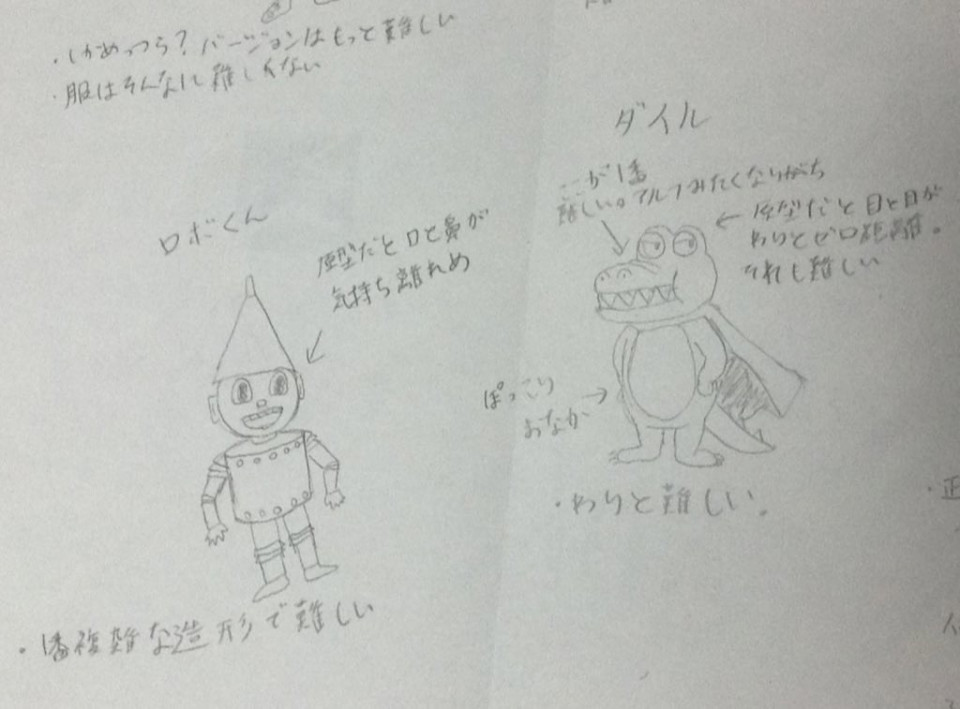 ・しかめっつら?バージョンはもっと難しい
・服はそんなに難しくない
ダイル
ここが1番
難しい。アルフみたくなりがち
← 原型だと目と目が
わりとゼロ距離。
それも難しい
ロボくん
原型だと口と鼻が
気持ち離れめ
ぽっこり
おなか→
・わりと難しい。
・1番複雑な造形で難しい